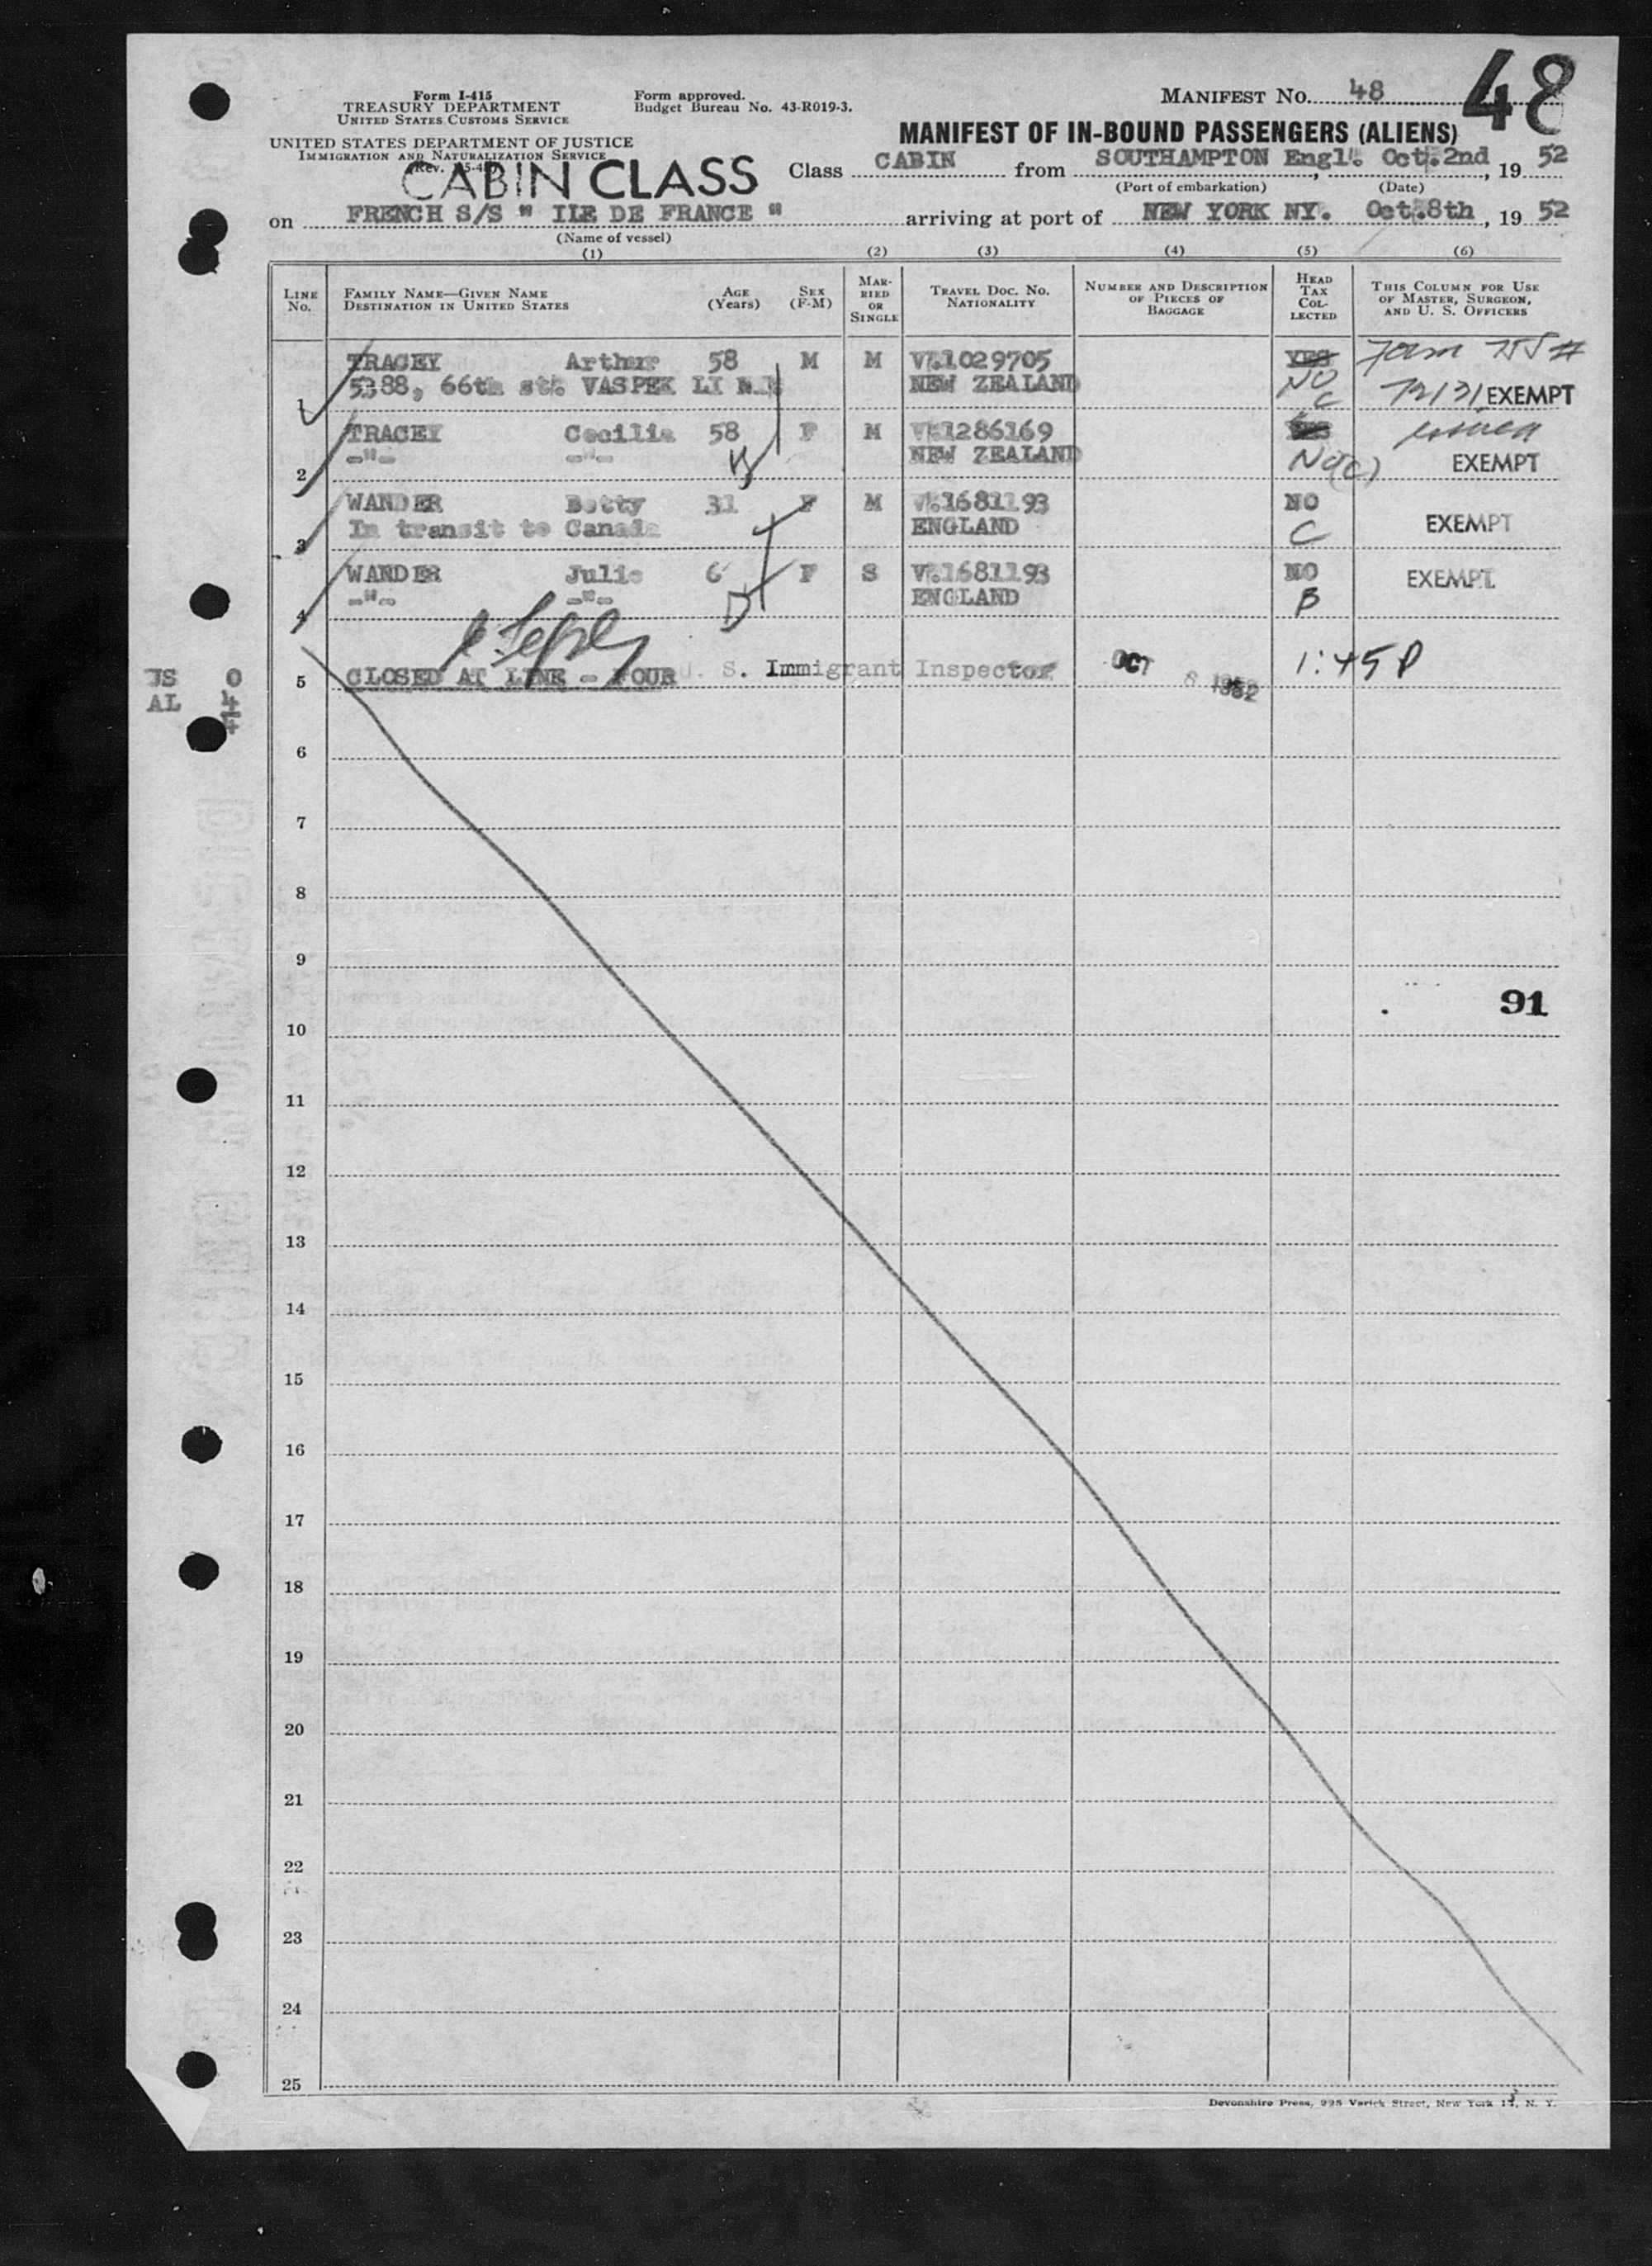 48
Form I-415
TREASURY DEPARTMENT
UNITED STATES CUSTOMS SERVICE
UNITED STATES DEPARTMENT OF JUSTICE
IMMIGRATION AND NATURALIZATION SERVICE
Form approved.
Budget Bureau No. 43-R019-3.
MANIFEST No. 48
MANIFEST OF IN-BOUND PASSENGERS (ALIENS)
CABIN CLASS
Class CABIN from SOUTHAMPTON Engl. Oct. 2nd, 19 52
(Port of embarkation) (Date)
on FRENCH S/S " ILE DE FRANCE " arriving at port of NEW YORK NY. Oct. 8th, 19 52
(Name of vessel)
(1) (2) (3) (4) (5) (6)
LINE No. FAMILY NAME—GIVEN NAME DESTINATION IN UNITED STATES AGE (Years) SEX (F-M) MARRIED OR SINGLE TRAVEL DOC. NO. NATIONALITY NUMBER AND DESCRIPTION OF PIECES OF BAGGAGE HEAD TAX COLLECTED THIS COLUMN FOR USE OF MASTER, SURGEON, AND U. S. OFFICERS
TRACEY Arthur 58 M M V.1029705 YES
1 5388, 66th st. VASPEK LI NEW ZEALAND NO C EXEMPT
TRACEY Cecilia 58 F M V.1286169 YES
2 -"- -"- NEW ZEALAND No (C) EXEMPT
WANDER Betty 31 F M V.1681193 NO
3 In transit to Canada ENGLAND C EXEMPT
WANDER Julie 6 F S V.1681193 NO EXEMPT
4 -"- -"- D ENGLAND B
5 CLOSED AT LINE - FOUR U. S. Immigrant Inspector OCT 8 1952 1:45 P
US 0
AL 4
6
7
8
9
91
10
11
12
13
14
15
16
17
18
19
20
21
22
23
24
25
Devonshire Press, 225 Varick Street, New York 14, N. Y.